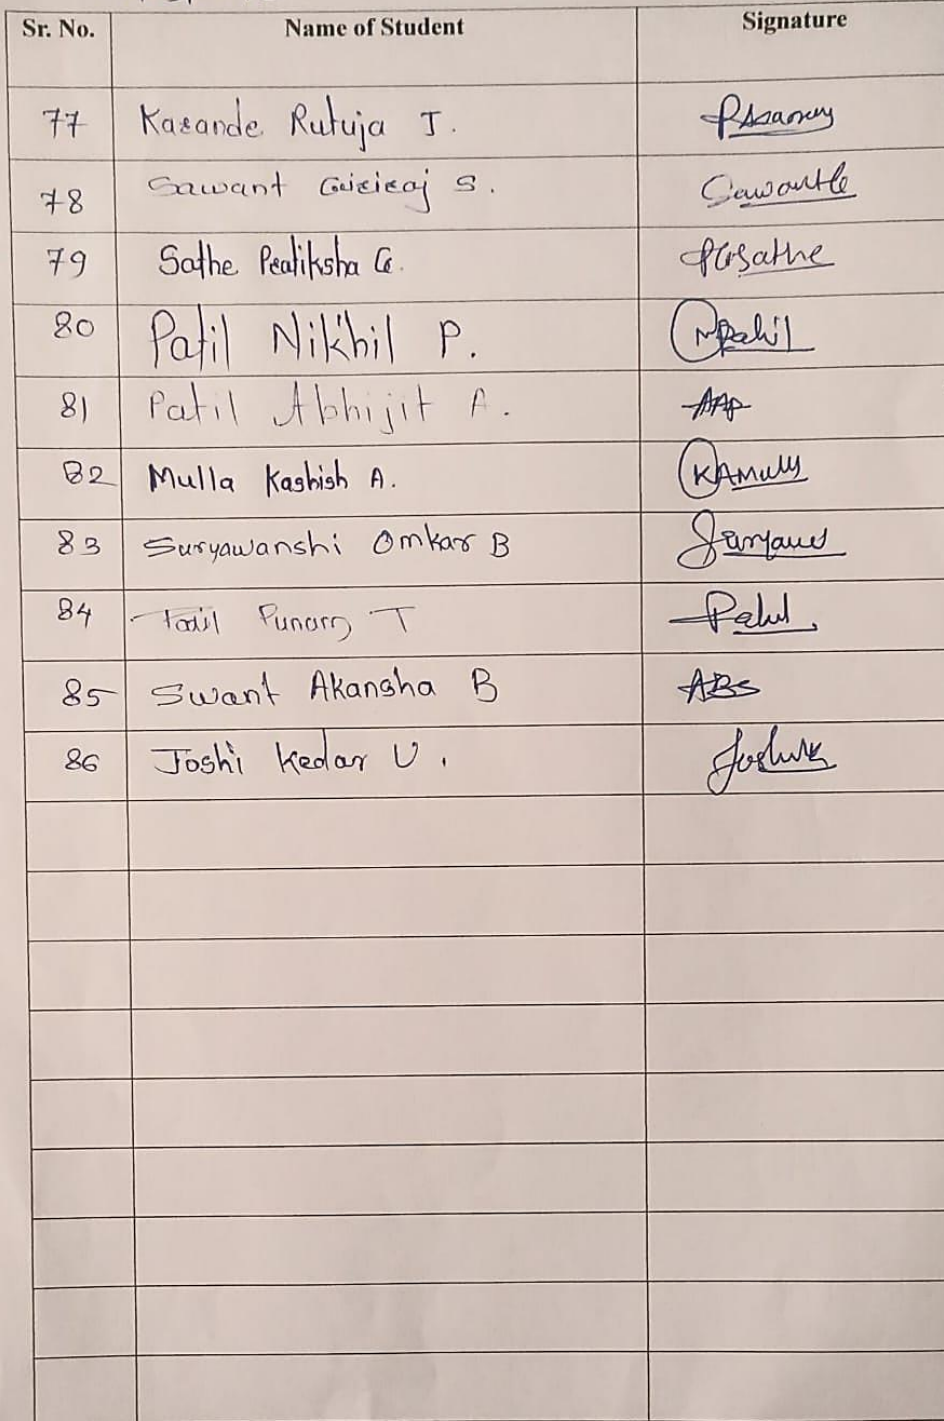 Sr. No. Name of Student Signature
77 Karande Rutuja J.
78 Sawant Giriraj S. Sawant
79 Sathe Pratiksha G. PGSathe
80 Patil Nikhil P. NPatil
81 Patil Abhijit A. AAP
82 Mulla Kashish A. KAMulla
83 Suryawanshi Omkar B
84 Patil T Patil
85 Swant Akansha B ABS
86 Joshi Kedar U.